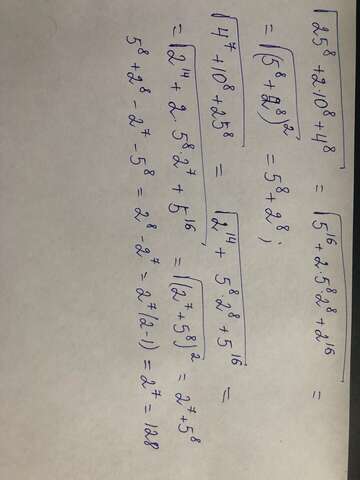 √(25⁸ + 2·10⁸ + 4⁸) = √(5¹⁶ + 2·5⁸·2⁸ + 2¹⁶) =
= √((5⁸ + 2⁸)²) = 5⁸ + 2⁸;
√(4⁷ + 10⁸ + 25⁸) = √(2¹⁴ + 5⁸·2⁸ + 5¹⁶) =
= √(2¹⁴ + 2·5⁸·2⁷ + 5¹⁶) = √((2⁷ + 5⁸)²) = 2⁷ + 5⁸
5⁸ + 2⁸ - 2⁷ - 5⁸ = 2⁸ - 2⁷ = 2⁷(2-1) = 2⁷ = 128